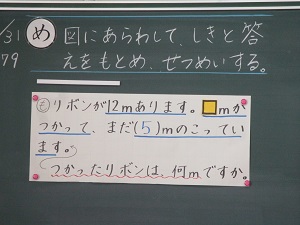 1/31 め 図にあらわして、しきと答
P79 えをもとめ、せつめいする。
も リボンが12mあります。□mか
つかって、まだ(5)mのこってい
ます。
つかったリボンは、何mですか。